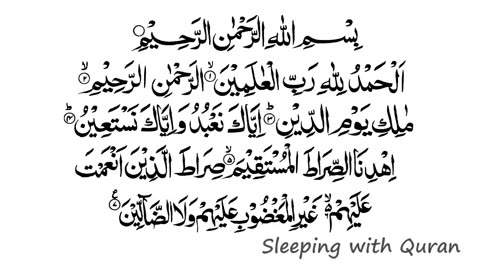 بِسْمِ اللهِ الرَّحْمٰنِ الرَّحِيْمِ
اَلْحَمْدُ لِلّٰهِ رَبِّ الْعٰلَمِيْنَ ۙ﴿۱﴾ الرَّحْمٰنِ الرَّحِيْمِ ۙ﴿۲﴾
مٰلِكِ يَوْمِ الدِّيْنِ ؕ﴿۳﴾ اِيَّاكَ نَعْبُدُ وَاِيَّاكَ نَسْتَعِيْنُ ؕ﴿۴﴾
اِهْدِنَا الصِّرَاطَ الْمُسْتَقِيْمَ ۙ﴿۵﴾ صِرَاطَ الَّذِيْنَ اَنْعَمْتَ
عَلَيْهِمْ ۙ۬ غَيْرِ الْمَغْضُوْبِ عَلَيْهِمْ وَلَا الضَّآلِّيْنَ
Sleeping with Quran